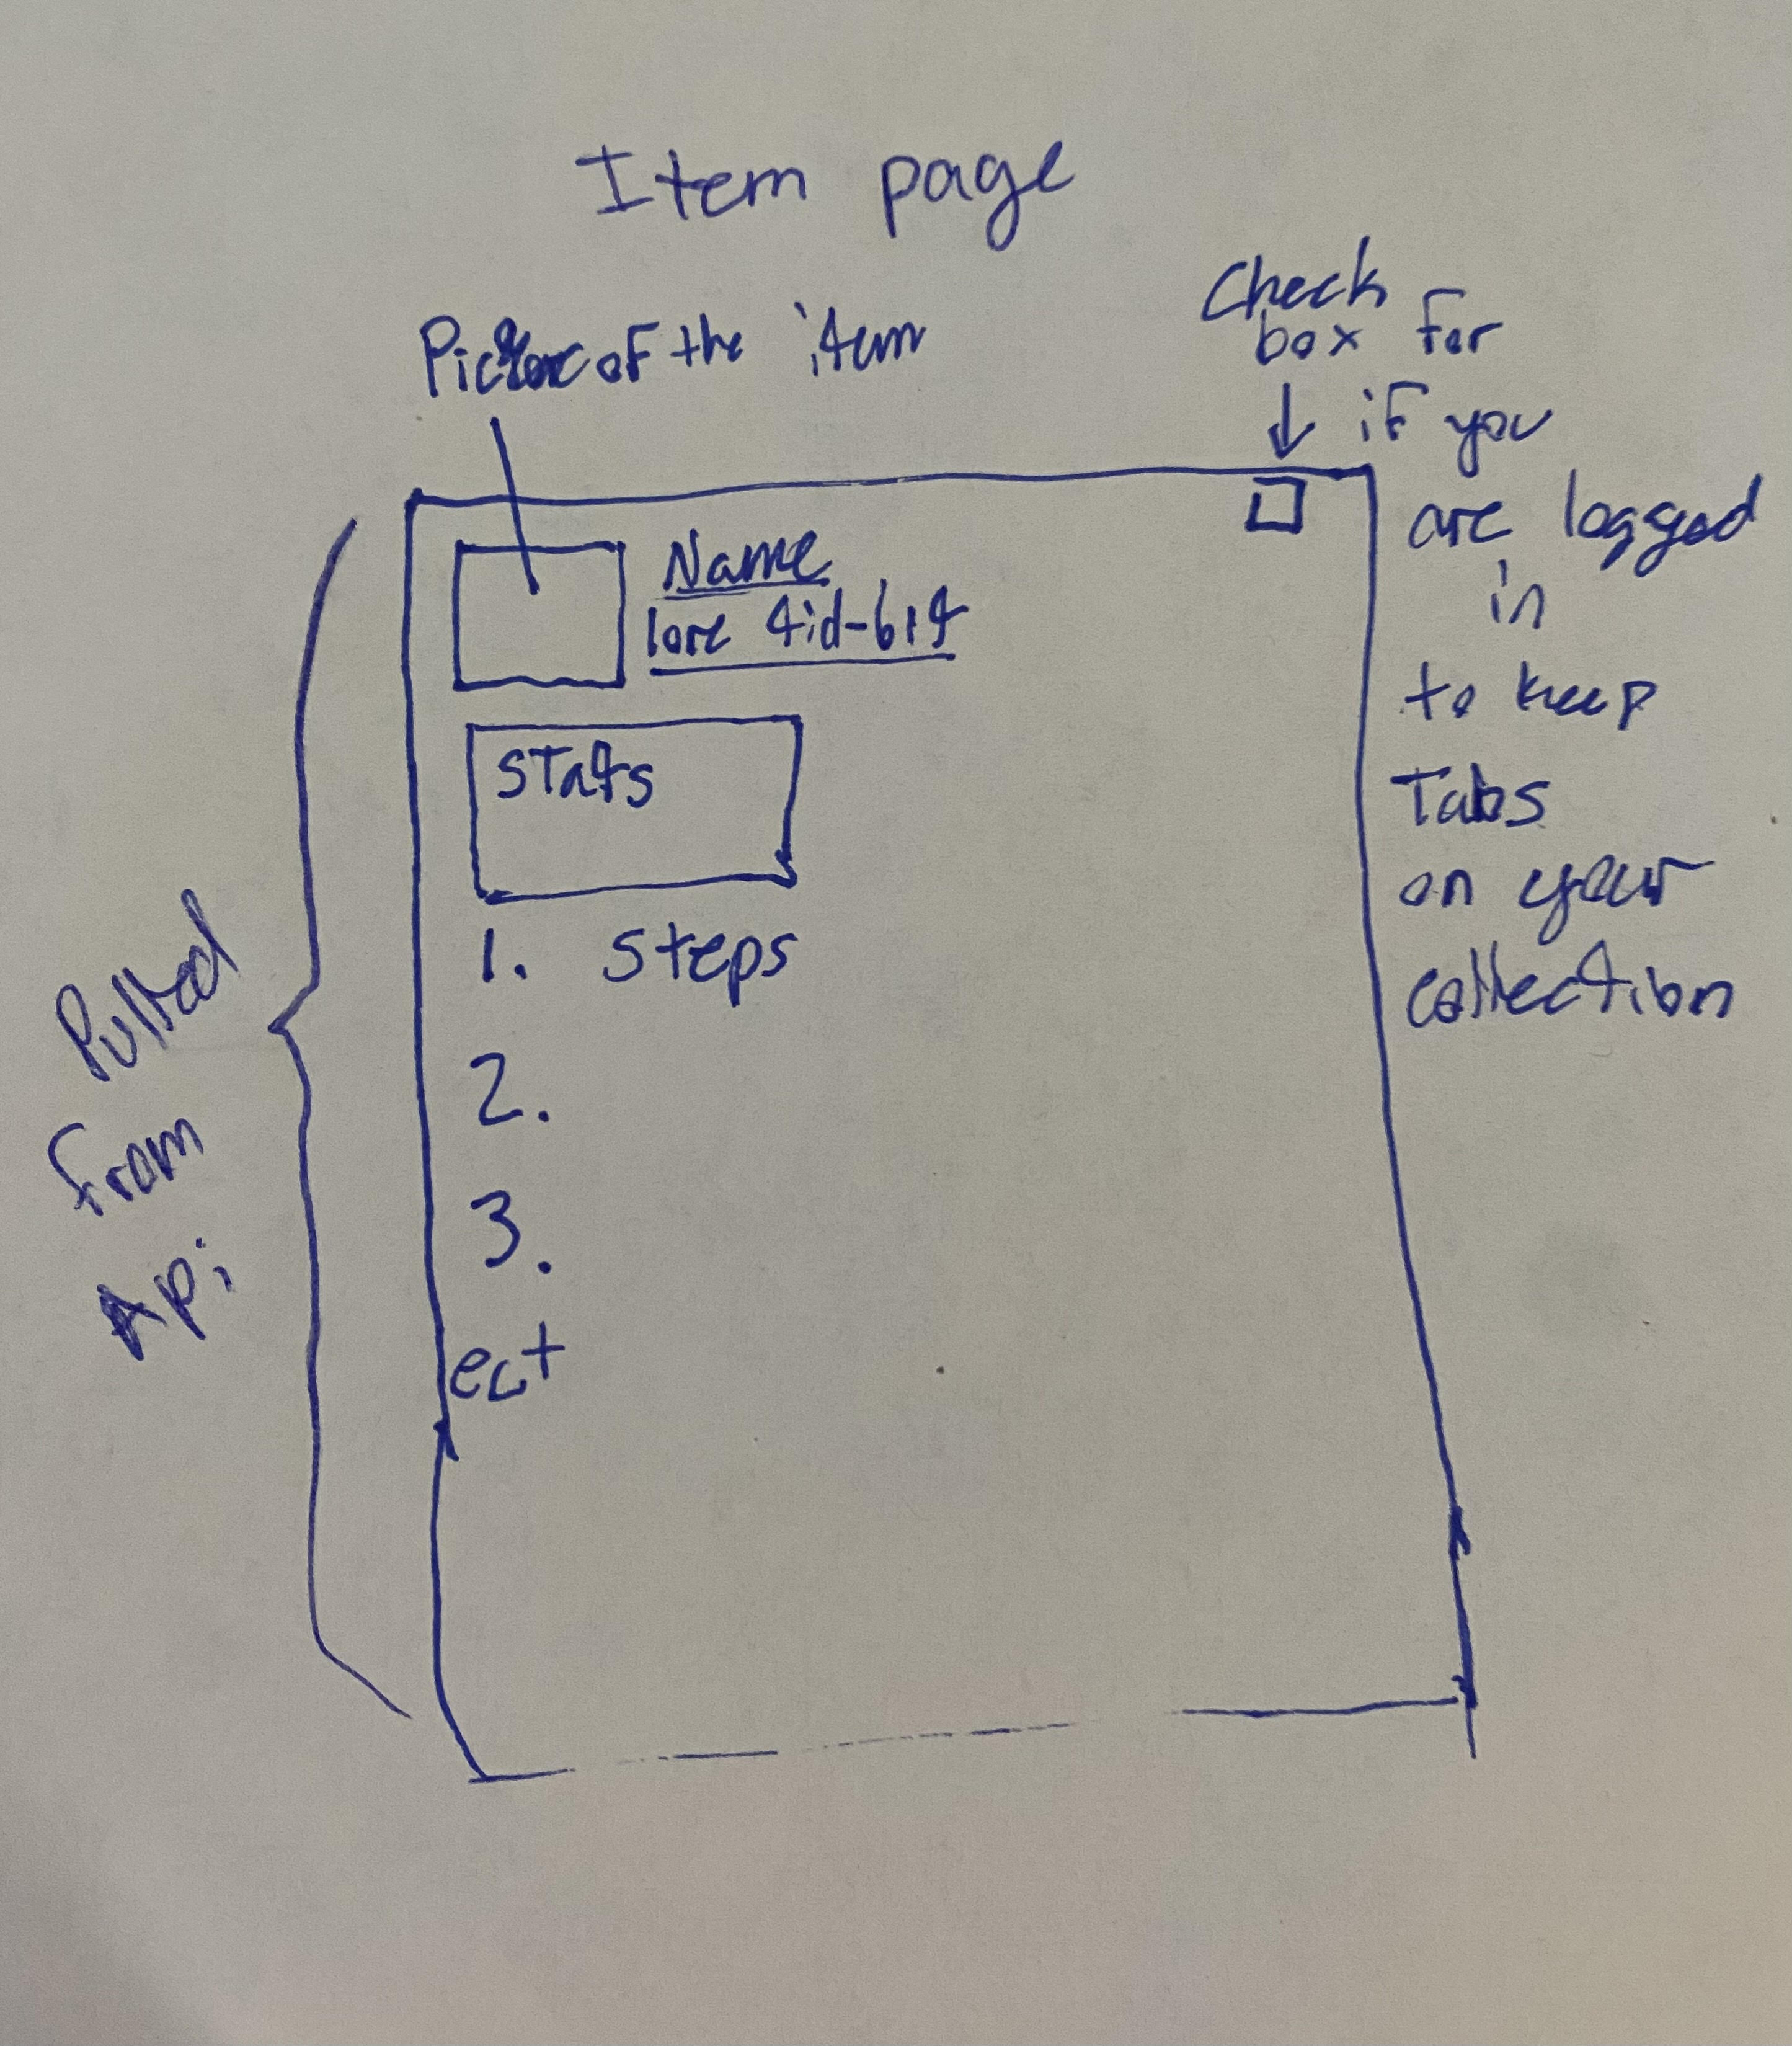 Item page
Picture of the item
Check
box for
if you
are logged
in
to keep
Tabs
on your
collection
Name
lore tid-bit
STats
1. Steps
2.
3.
ect
Pulled
from
Api